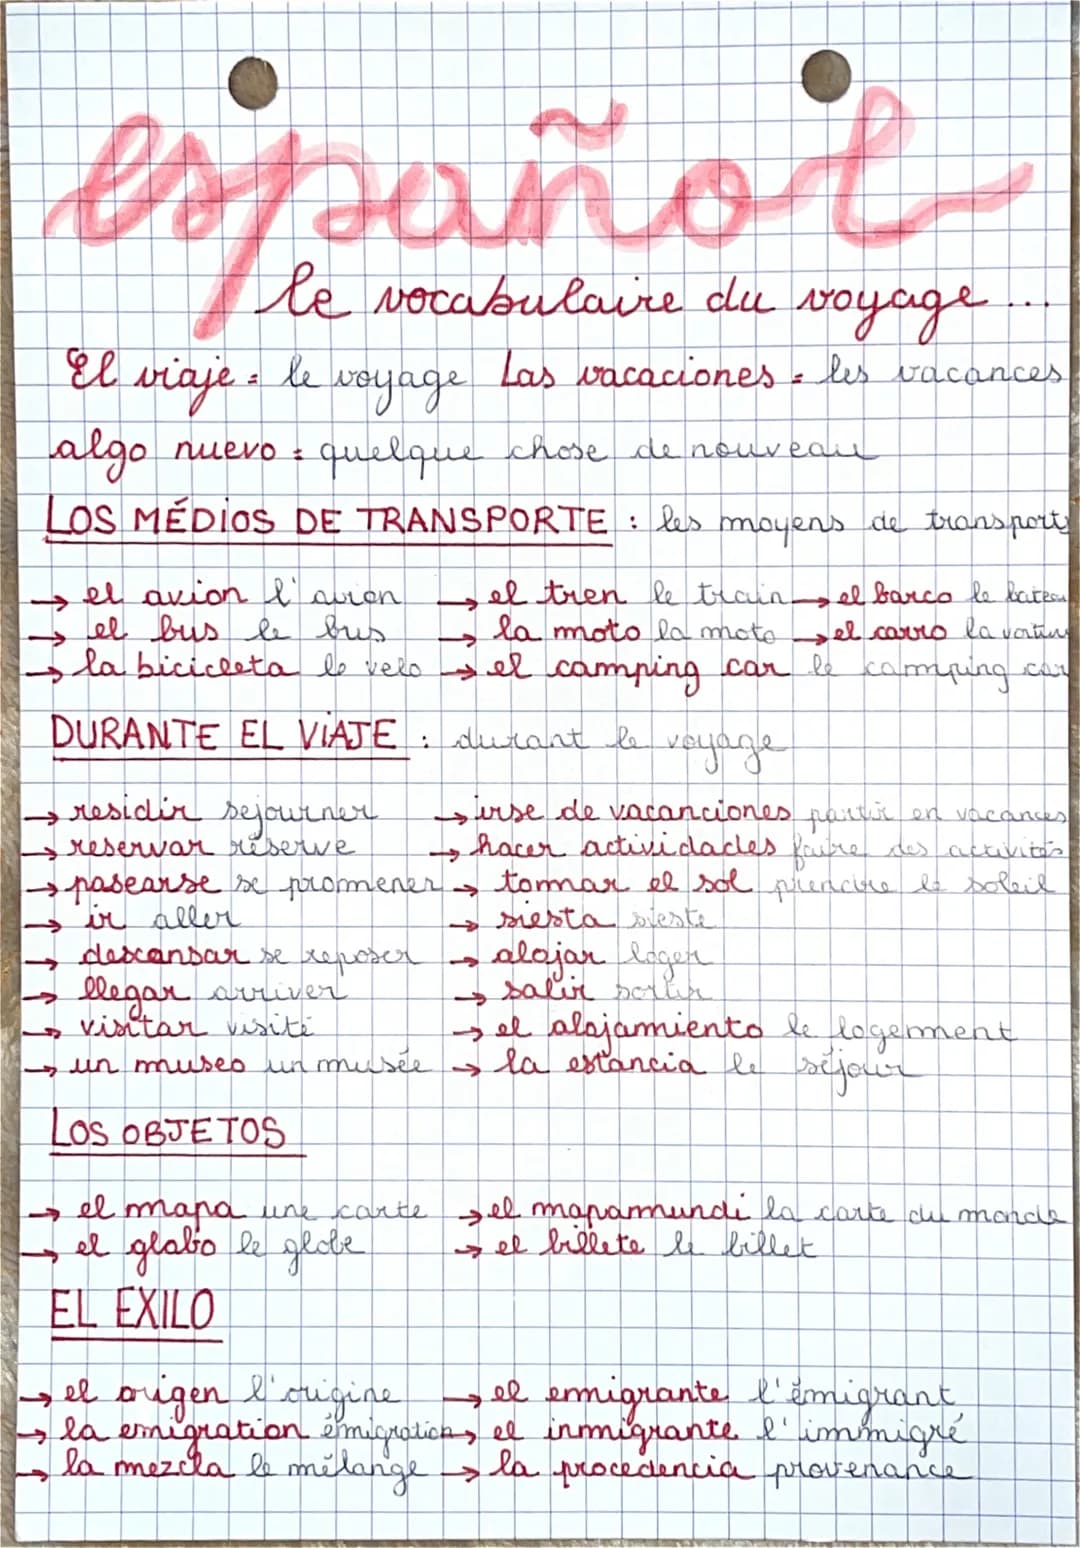 español
le vocabulaire du voyage ...
El viaje = le voyage Las vacaciones = les vacances
algo nuevo = quelque chose de nouveau
LOS MÉDIOS DE TRANSPORTE : les moyens de transports
→ el avion l'avion → el tren le train → el barco le bateau
→ el bus le bus → la moto la moto → el carro la voiture
→ la bicicleta le velo → el camping car le camping car
DURANTE EL VIAJE : durant le voyage
→ residir sejourner → irse de vacanciones partir en vacances
→ reservar réserve → hacer actividades faire des activités
→ pasearse se promener → tomar el sol prendre le soleil
→ ir aller → siesta sieste
→ descansar se reposer → alojar loger
→ llegar arriver → salir sortir
→ visitar visité → el alojamiento le logement
→ un museo un musée → la estancia le séjour
LOS OBJETOS
→ el mapa une carte → el mapamundi la carte du monde
→ el globo le globe → el billete le billet
EL EXILO
→ el origen l'origine → el emigrante l'émigrant
→ la emigration émigration → el inmigrante l'immigré
→ la mezcla le mélange → la procedencia provenance